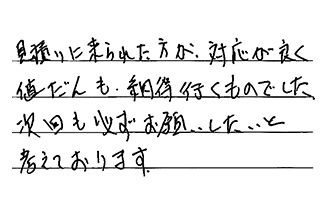 見積りに来られた方が、対応が良く
値だんも、納得行くものでした、
次回も必ずお願いしたいと
考えております。